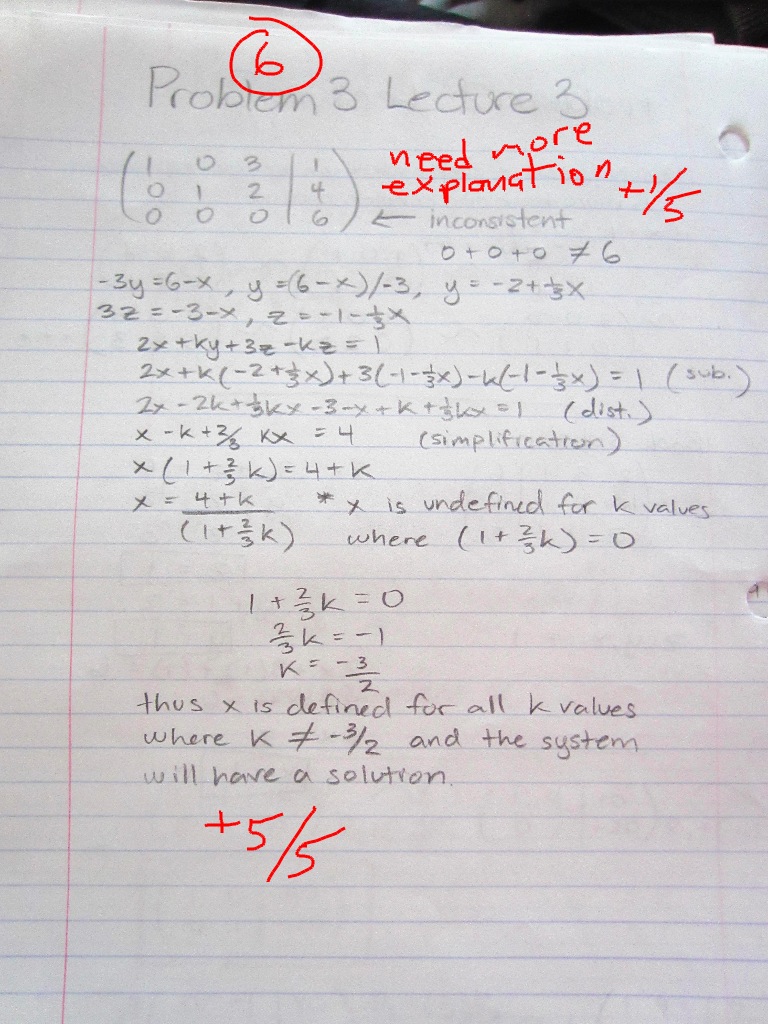 6
Problem 3 Lecture 3
need more
explanation +1/5
( 1 0 3 | 1 )
( 0 1 2 | 4 )
( 0 0 0 | 6 ) ← inconsistent
0+0+0 ≠ 6
-3y=6-x, y=(6-x)/-3, y=-2+⅓x
3z=-3-x, z=-1-⅓x
2x+ky+3z-kz=1
2x+k(-2+⅓x)+3(-1-⅓x)-k(-1-⅓x)=1 (sub.)
2x-2k+⅓kx-3-x+k+⅓kx=1 (dist.)
x-k+2/3 kx=4 (simplification)
x(1+⅔k)=4+k
x = 4+k * x is undefined for k values
(1+⅔k) where (1+⅔k)=0
1+⅔k=0
⅔k=-1
k=-3/2
thus x is defined for all k values
where k ≠ -3/2 and the system
will have a solution.
+5/5